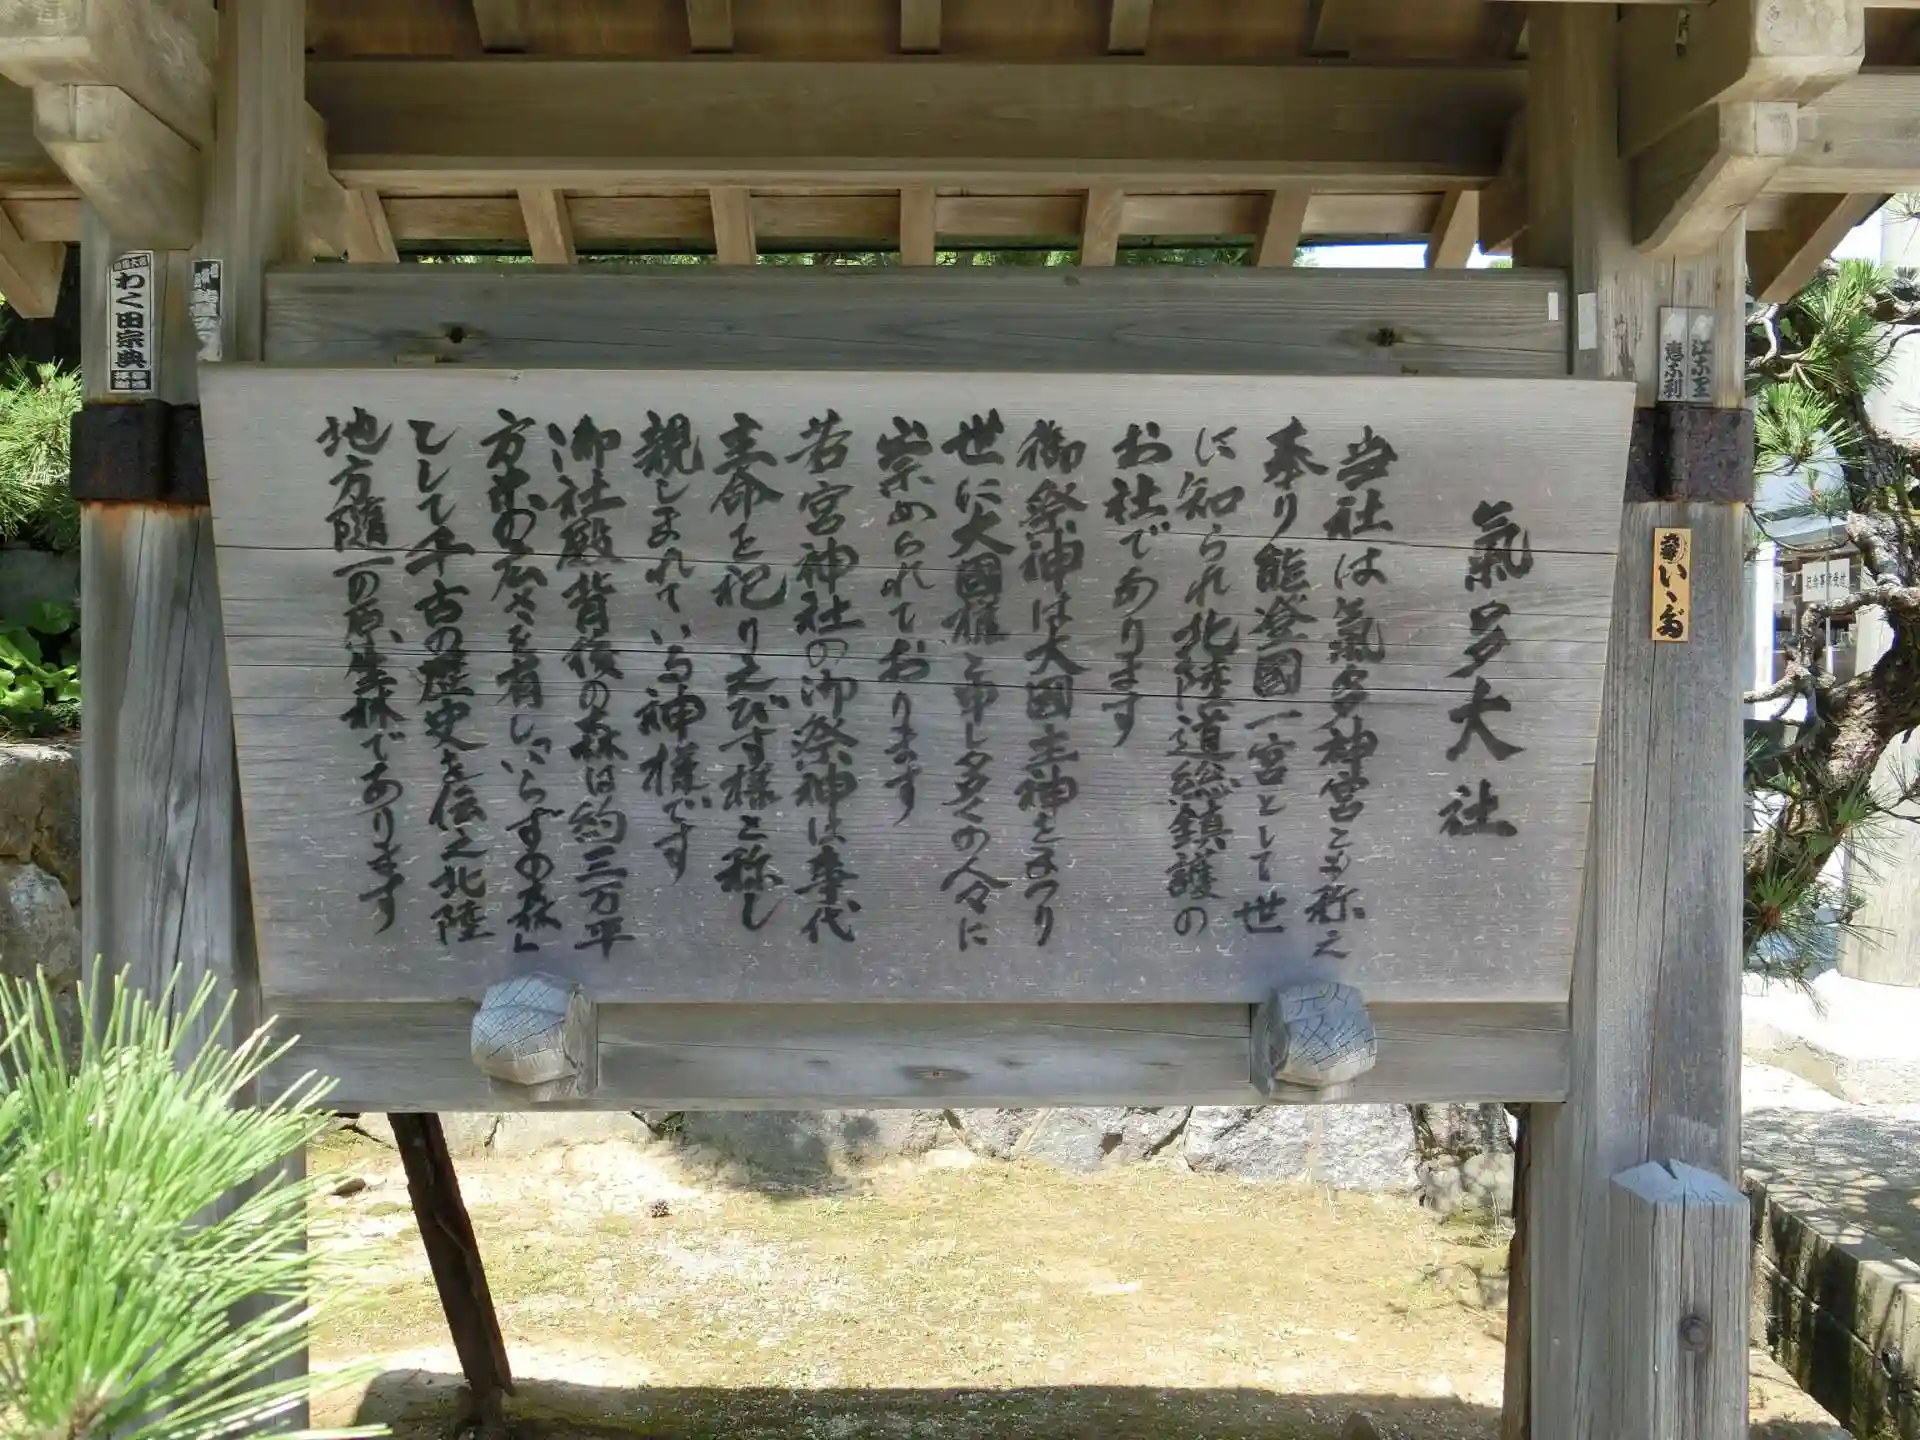 氣多大社
当社は氣多神宮とも称え
奉り能登國一宮として世
に知られ北陸道総鎮護の
お社であります
御祭神は大國主神をまつり
世に大國様と申し多くの人々に
崇められております
若宮神社の御祭神は事代
主命を祀りえびす様と称し
親しまれている神様です
御社殿背後の森は約三万平
方米の広さを有し「いらずの森」
として千古の歴史を伝え北陸
地方随一の原生林であります
わく田宗典
江木里
恵木利